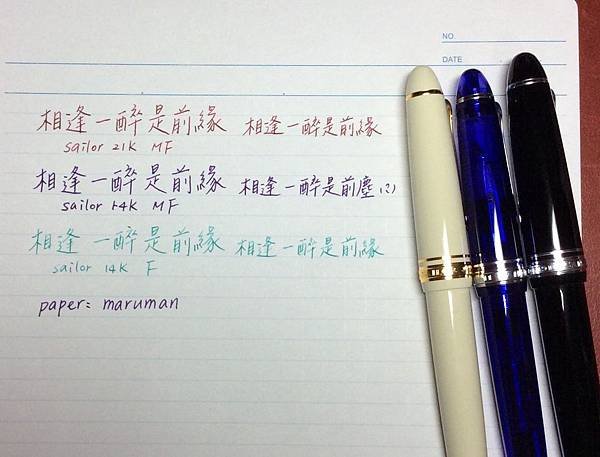 NO.
DATE
相逢一醉是前緣 相逢一醉是前緣
sailor 21K MF
相逢一醉是前緣 相逢一醉是前塵(?)
sailor 14K MF
相逢一醉是前緣 相逢一醉是前緣
sailor 14K F
paper: maruman